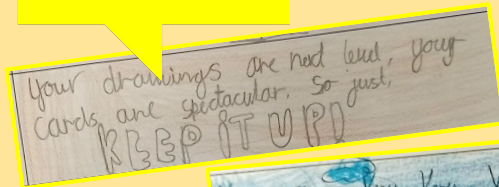 Your drawings are next level, your
cards are spectacular. So just,
KEEP IT UP!